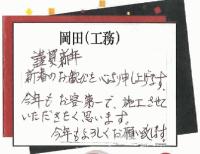 岡田(工務)
謹賀新年
新春のお慶びを心より申し上げます。
今年もお客第一で、施工させ
いただきたく思います。
今年もよろしくお願い致します